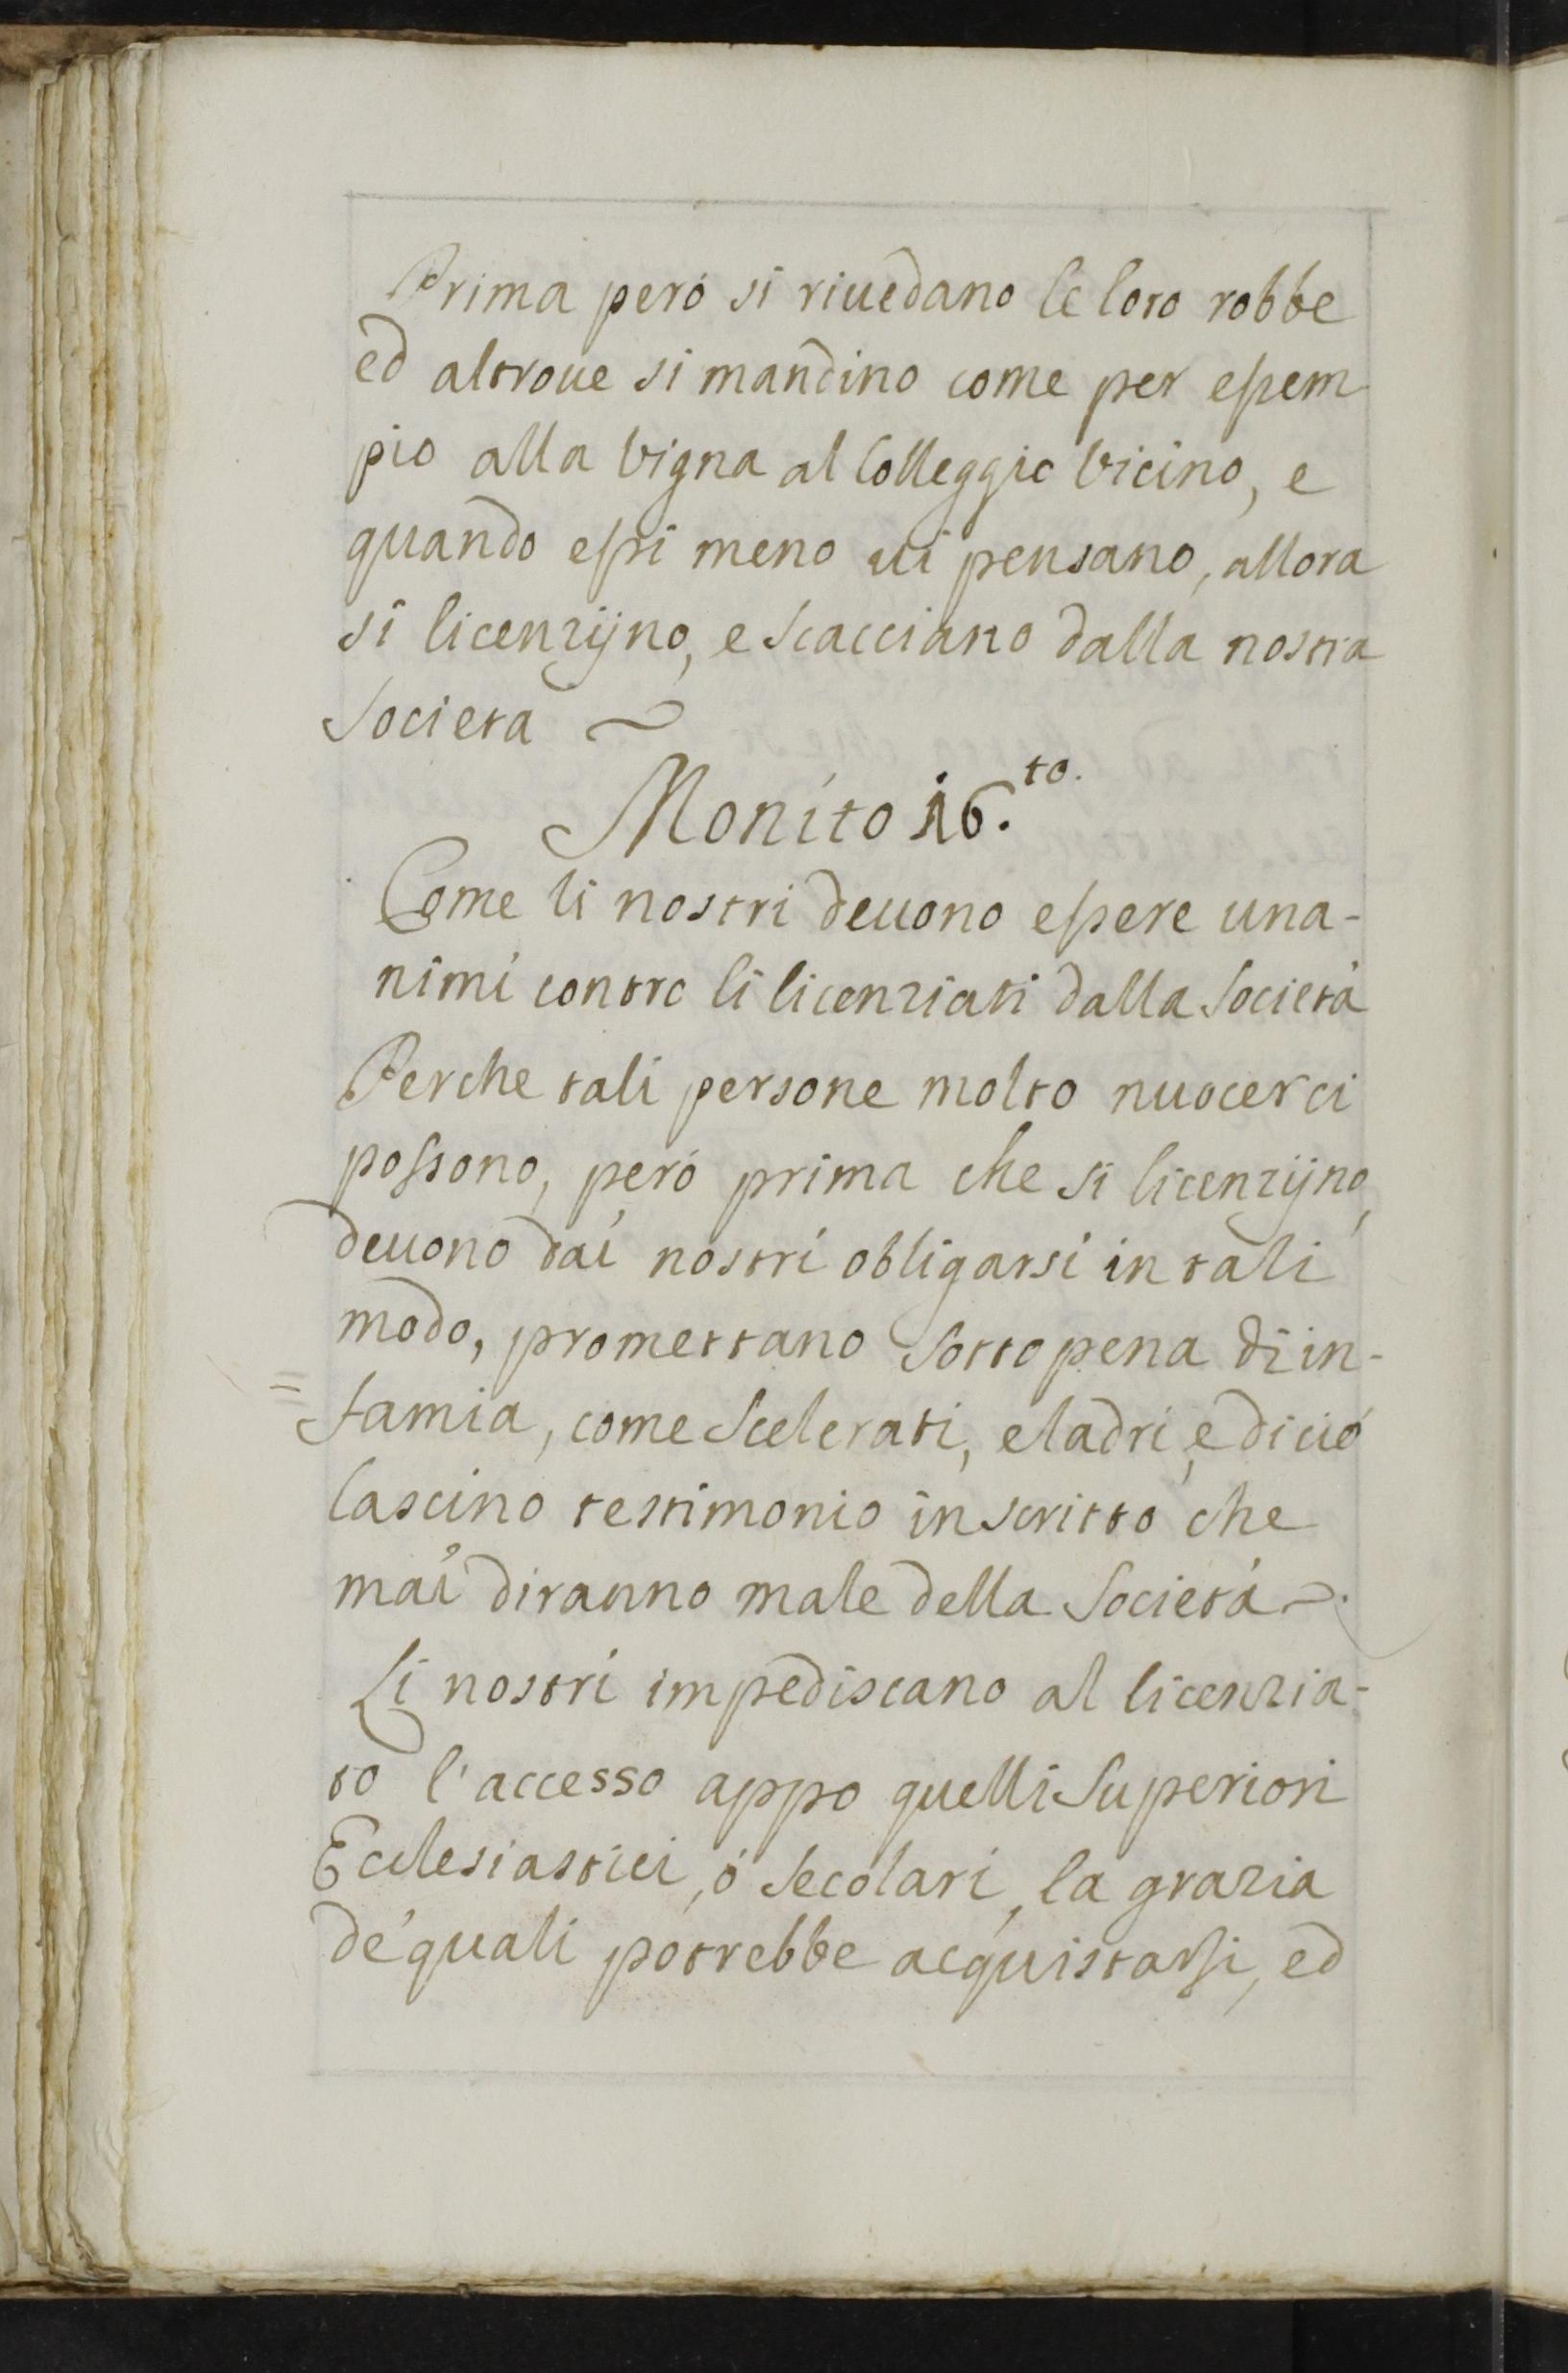 Prima peró si riuedano le loro robbe
ed altroue si mandino come per essem
pio alla Vigna al Colleggio Vicino, e
quando essi meno ui pensano, allora
si licenzijno, e Scacciano dalla nostra
Societa ~
Monito 16.to.
Come li nostri deuono essere una-
nimi contro li licenziati dalla Società
Perche tali persone molto nuocerci
possono, peró prima che si licenzijno,
deuono dai nostri obligarsi in tali
modo, promettano Sotto pena di in-
= famia, come Scelerati, e ladri, e di ció
lascino testimonio in scritto che
mai diranno male della Societá ~.
Li nostri impediscano al licenzia-
to l'accesso appo quelli Superiori
Ecclesiastici, ó Secolari, la grazia
de' quali potrebbe acquistarsi, ed